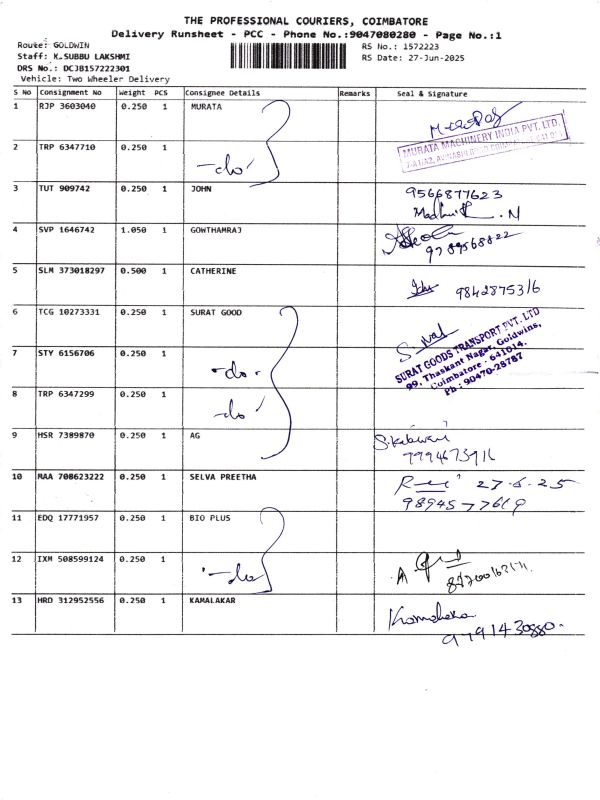 THE PROFESSIONAL COURIERS, COIMBATORE
Delivery Runsheet - PCC - Phone No.:9047080280 - Page No.:1
Route: GOLDWIN
RS No.: 1572223
Staff: K.SUBBU LAKSHMI
RS Date: 27-Jun-2025
DRS No.: DCJB157222301
Vehicle: Two Wheeler Delivery
S No Consignment No Weight PCS Consignee Details Remarks Seal & Signature
1 RJP 3603040 0.250 1 MURATA
MURATA MACHINERY INDIA PVT. LTD.
2 TRP 6347710 0.250 1 -do-
3 TUT 909742 0.250 1 JOHN 9566877623
Madhu N
4 SVP 1646742 1.050 1 GOWTHAMRAJ
9789568822
5 SLM 373018297 0.500 1 CATHERINE
9842875316
6 TCG 10273331 0.250 1 SURAT GOOD
SURAT GOODS TRANSPORT PVT. LTD
99, Thaskant Nagar, Goldwins,
Coimbatore - 641014.
Ph : 90470-29787
7 STY 6156706 0.250 1 -do-
8 TRP 6347299 0.250 1 -do-
9 HSR 7389870 0.250 1 AG
7994673911
10 MAA 708623222 0.250 1 SELVA PREETHA 27-6-25
98945-77619
11 EDQ 17771957 0.250 1 BIO PLUS
12 IXM 508599124 0.250 1 -do-
13 HRD 312952556 0.250 1 KAMALAKAR
9791430880.